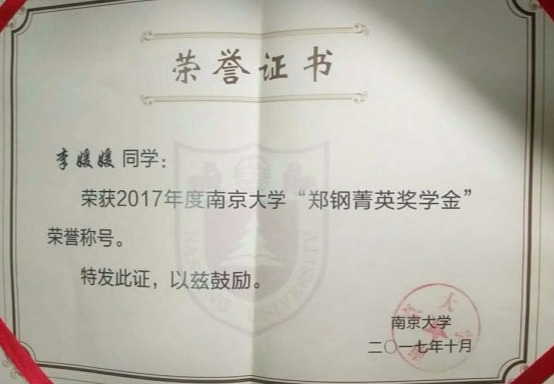 荣誉证书
李媛媛 同学：
荣获2017年度南京大学“郑钢菁英奖学金”
荣誉称号。
特发此证，以兹鼓励。
南京大学
二〇一七年十月